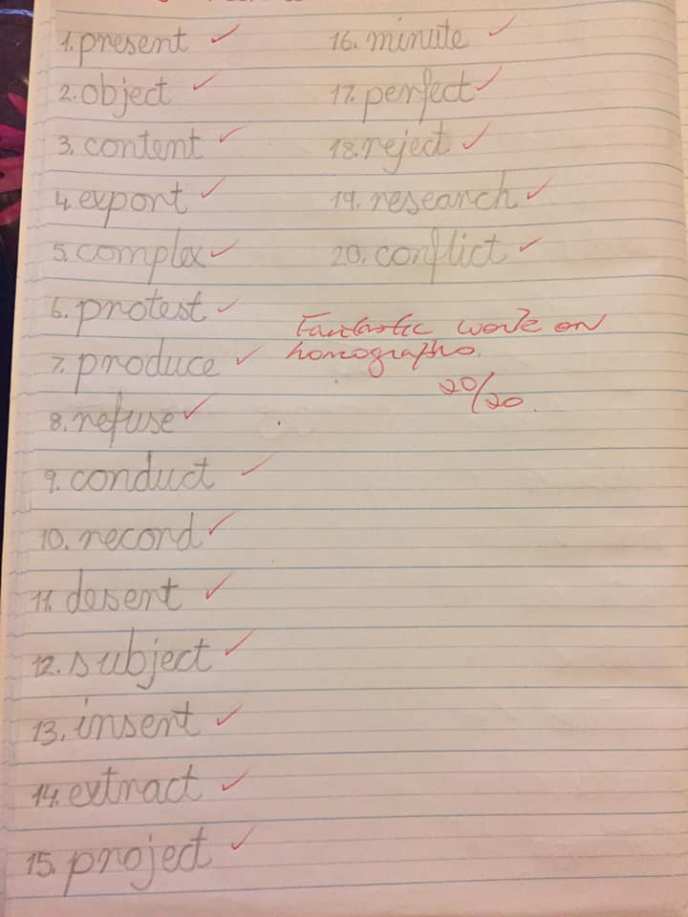 1. present ✓
2. object ✓
3. content ✓
4. export ✓
5. complex ✓
6. protest ✓
7. produce ✓
8. refuse ✓
9. conduct ✓
10. record ✓
11. desert ✓
12. subject ✓
13. insert ✓
14. extract ✓
15. project ✓
16. minute ✓
17. perfect ✓
18. reject ✓
19. research ✓
20. conflict ✓
Fantastic work on
homographs.
20/20.